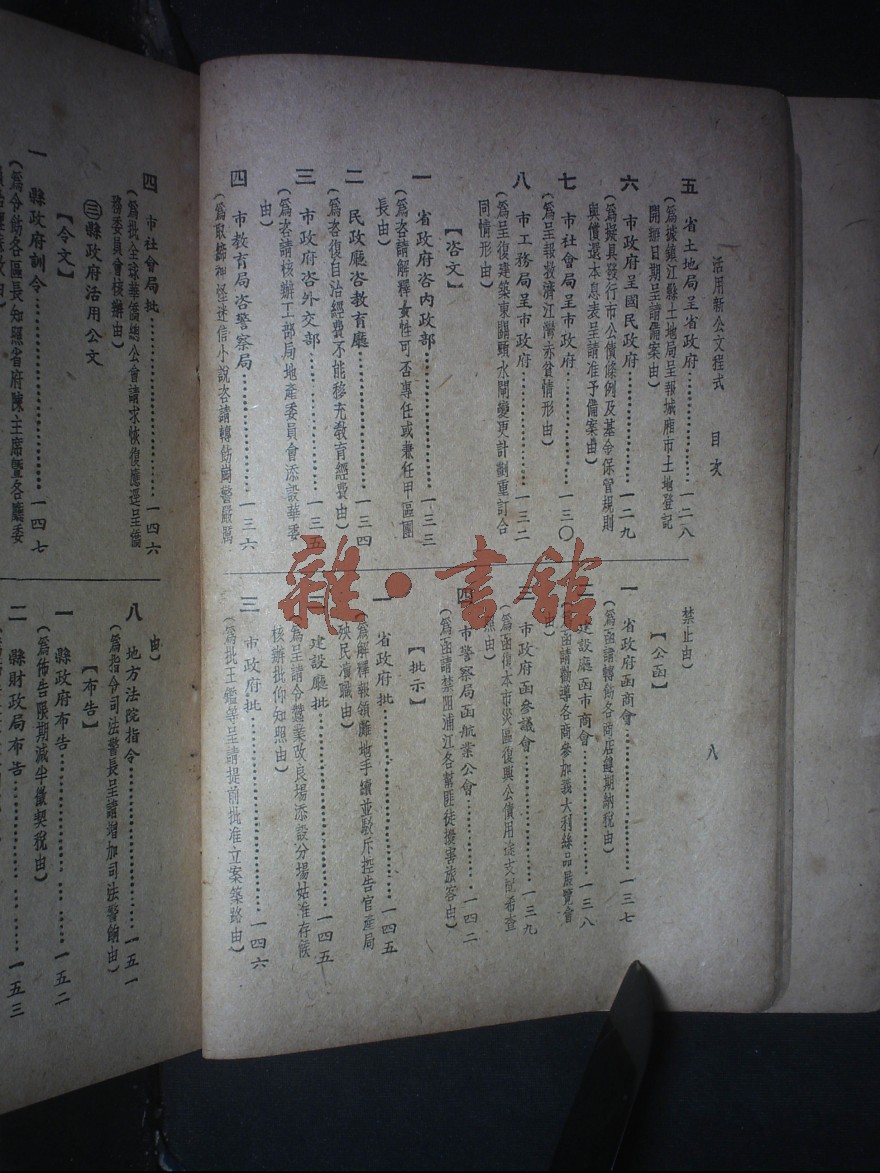 活用新公文程式　目次
八
五　省土地局呈省政府…………一二八
(爲據鎮江縣土地局呈報城廂市土地登記
開辦日期呈請備案由)
六　市政府呈國民政府…………一二九
(爲擬具發行市公債條例及基金保管規則
與償還本息表呈請准予備案由)
七　市社會局呈市政府…………一三〇
(爲呈報救濟江灣赤貧情形由)
八　市工務局呈市政府…………一三二
(爲呈復建築東關頭水閘變更計劃重訂合
同情形由)
【咨文】
一　省政府咨內政部…………一三三
(爲咨請解釋女性可否專任或兼任甲區團
長由)
二　民政廳咨教育廳…………一三四
(爲咨復自治經費不能移充教育經費由)
三　市政府咨外交部…………一三五
(爲咨請核辦工部局地產委員會添設華委
由)
四　市教育局咨警察局…………一三六
(爲取締神怪迷信小說咨請轉飭崗警嚴厲
禁止由)
【公函】
一　省政府函商會…………一三七
(爲函請轉飭各商店縫期納稅由)
二　建設廳函市商會…………一三八
(爲函請勸導各商參加義大利絲品展覽會
由)
三　市政府函參議會…………一三九
(爲函復本市災區復興公債用途支配希查
照由)
四　市警察局函航業公會…………一四二
(爲函請禁阻浦江各幫匪徒擾害旅客由)
【批示】
一　省政府批…………一四五
(爲解釋報領灘地手續並駁斥控告官產局
殃民瀆職由)
二　建設廳批…………一四五
(爲呈請令蠶業改良場添設分場姑准存候
核辦批仰知照由)
三　市政府批…………一四六
(爲批王鑑等呈請提前批准立案築路由)
四　市社會局批…………一四六
(爲批全球華僑總公會請求恢復應逕呈僑
務委員會核辦由)
㊂縣政府活用公文
【令文】
一　縣政府訓令…………一四七
(爲令飭各區長知照省府陳主席暨各廳委
由)
八　地方法院指令…………一五一
(爲指令司法警長呈請增加司法警餉由)
【布告】
一　縣政府布告…………一五二
(爲佈告限期減半徵契稅由)
二　縣財政局布告…………一五三
雜·書館